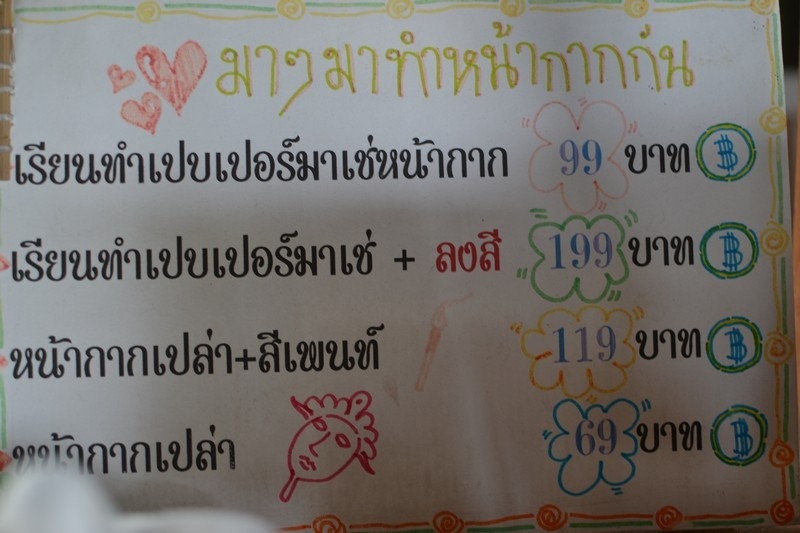 มาๆ มาทำหน้ากากกัน
เรียนทำเปบเปอร์มาเช่หน้ากาก 99 บาท ฿
เรียนทำเปบเปอร์มาเช่ + ลงสี 199 บาท ฿
หน้ากากเปล่า+สีเพนท์ 119 บาท ฿
หน้ากากเปล่า 69 บาท ฿